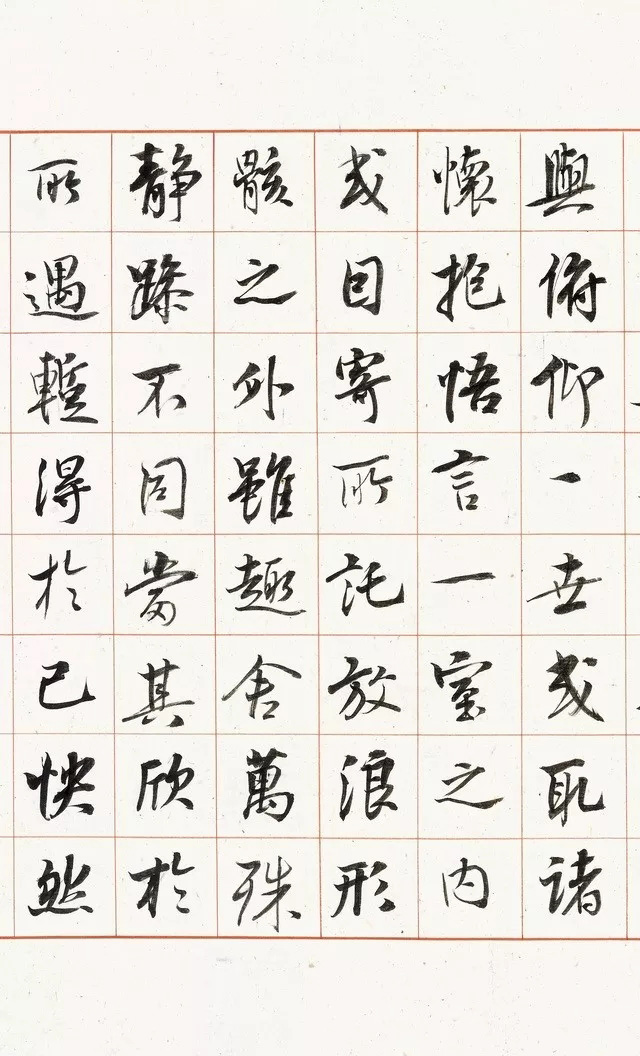 與俯仰一世或取諸
懷抱悟言一室之内
或因寄所託放浪形
骸之外雖趣舍萬殊
静躁不同當其欣於
所遇暫得於己怏然